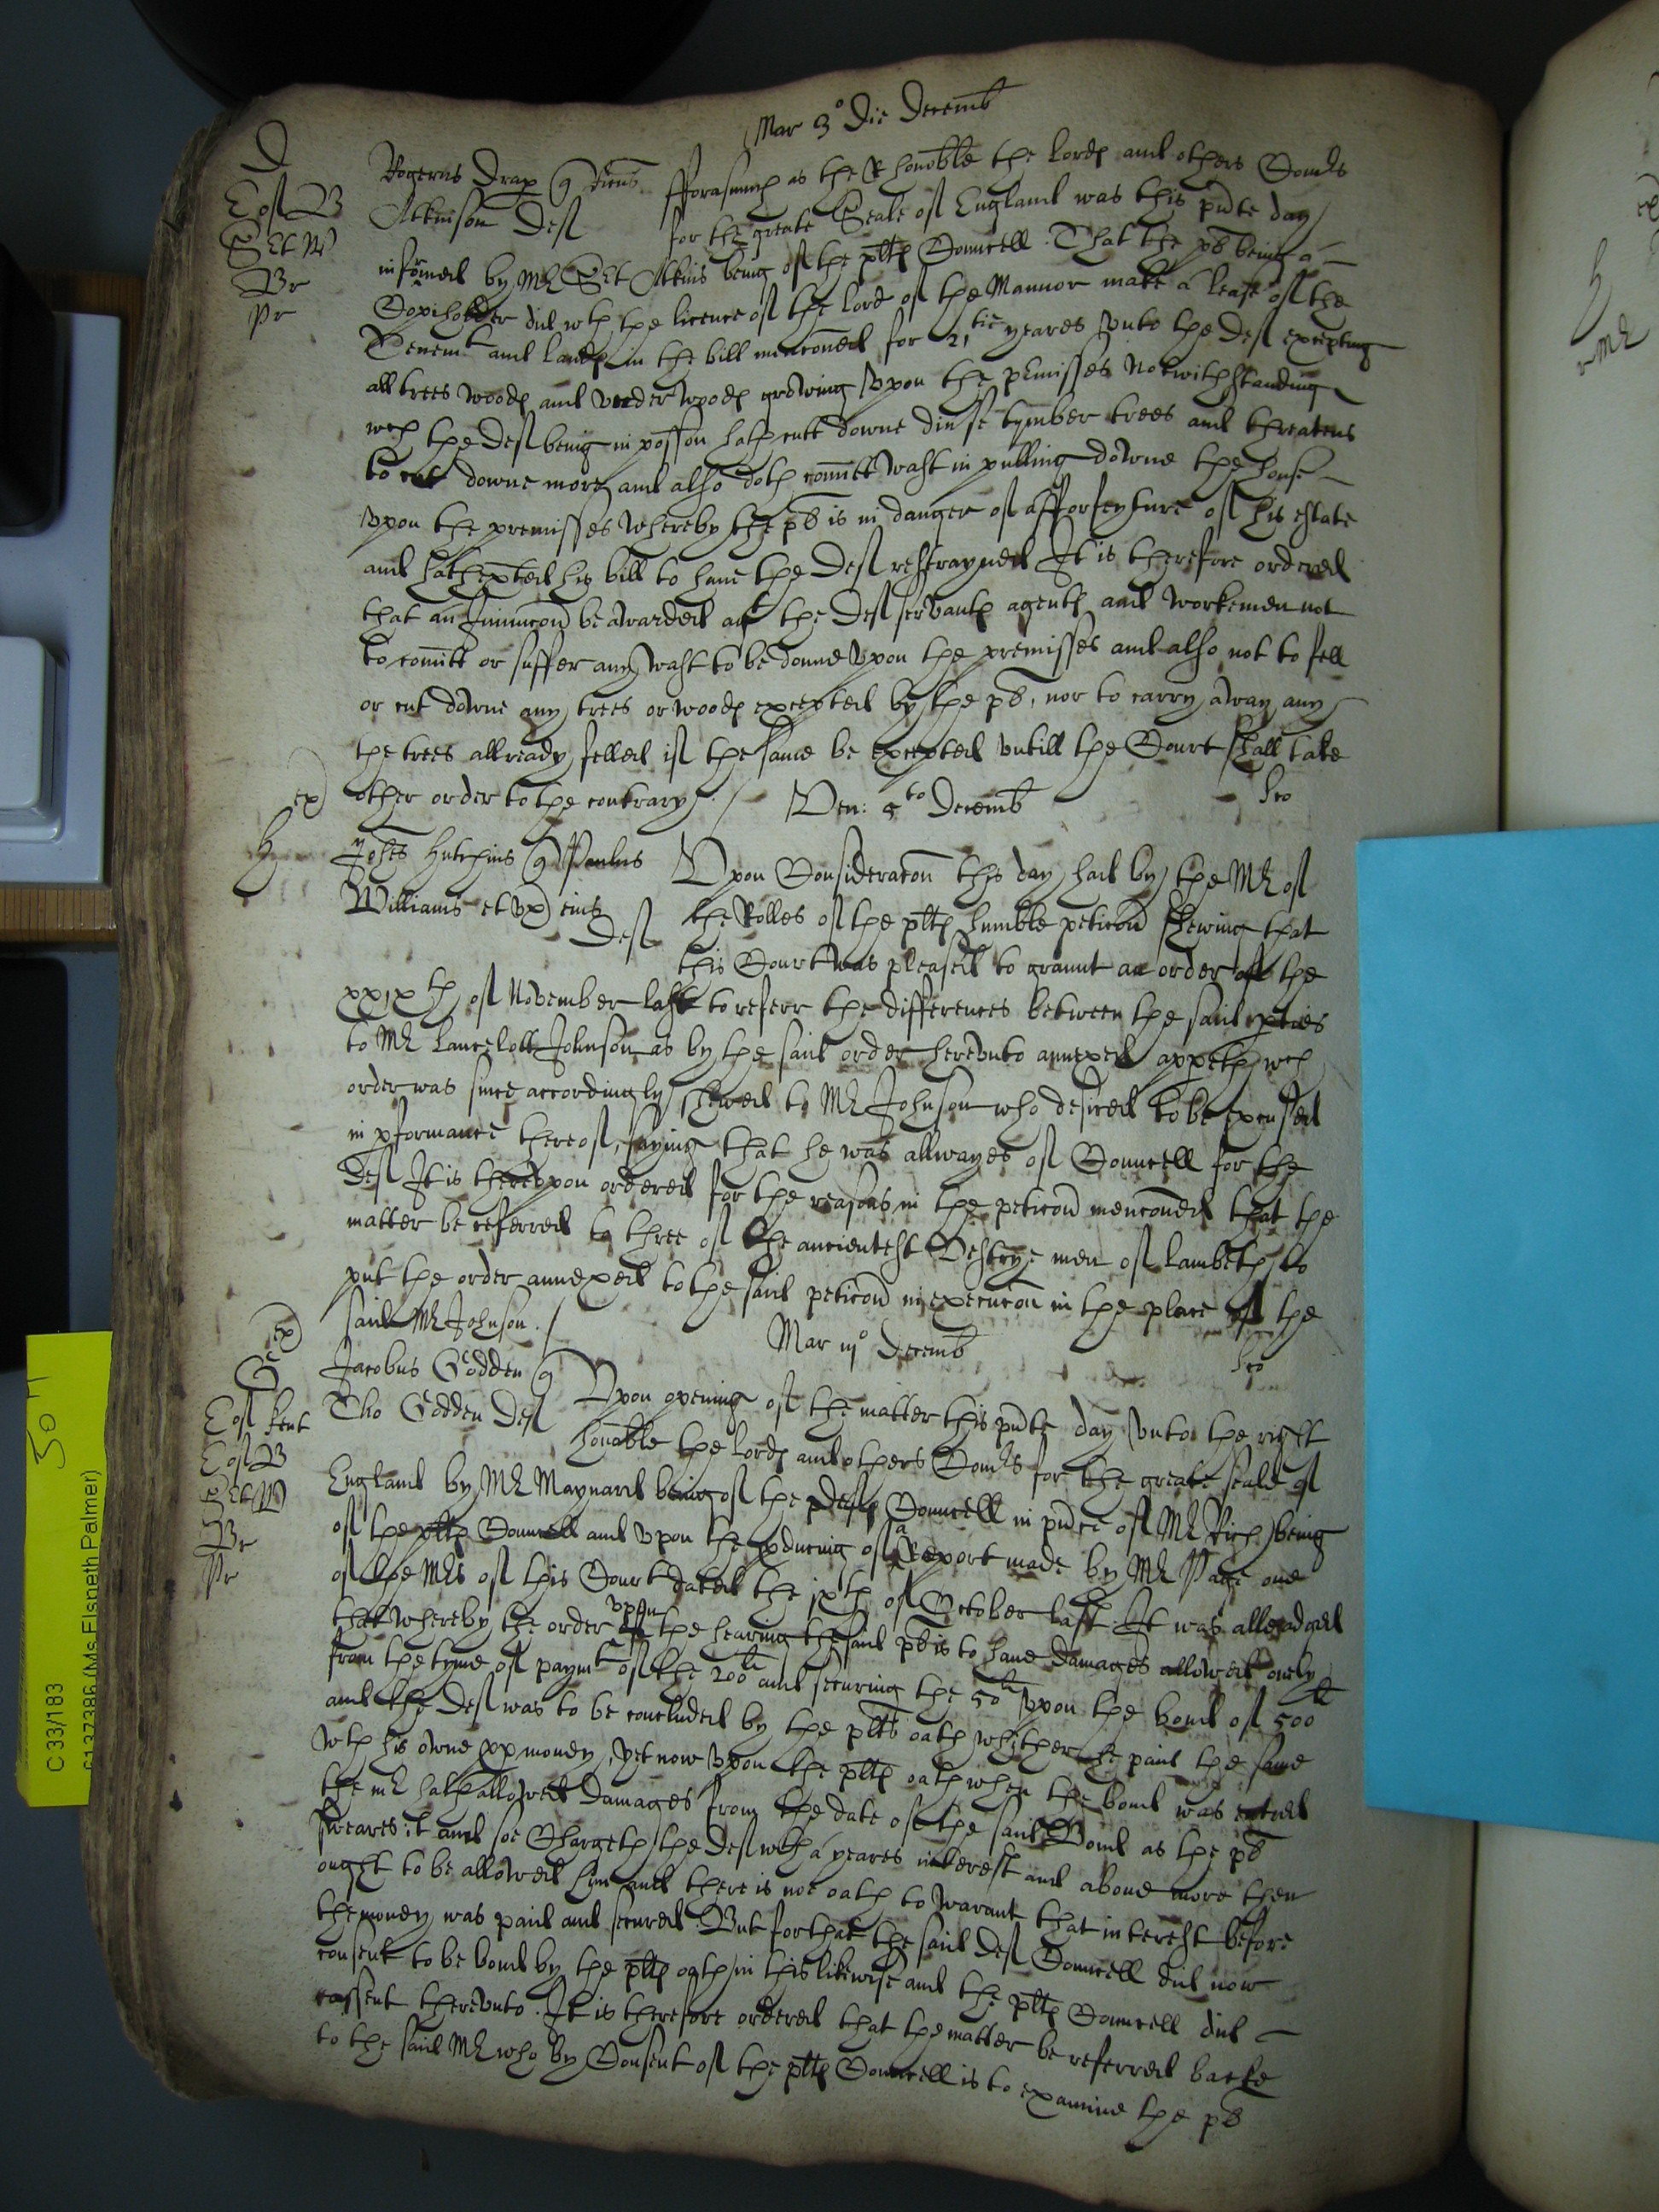 Mar 3° die Decemb
D
Rogerus Drap q
Atkinson Def
fforasmuch as the R honoble the lords and others Comrs
for the greate Seale of England was this pnte day
informed by Mr Sr<sup></sup>t Atkins being of the plts Councell That the pl being a
Copiholder did wth the licence of the lord of the Mannor make a lease of the
Tenemt and lands in the bill menconed for 21tie yeares vnto the def excepting
all trees woods and vnderwoods growing vpon the pmisses Notwithstanding
wch the def being in posson hath cutt downe diuse tymber trees and threatens
to cut downe more and also doth comitt wast in pulling downe the house
vpon the premisses whereby the pl is in danger of a fforfeyture of his estate
and hath exted his bill to haue the def restrayned It is therefore ordered
that an Iniunccon be awarded agt the def servants agents and workemen not
to comitt or suffer any wast to be donne vpon the premisses and also not to fell
or cut downe any trees or woods excepted by the pl, nor to carry away any
the trees allready felled if the same be excepted vntill the Court shall take
other order to the contrary./
ex
Ven: 5to Decemb
H
Johes Hutchins q Paulus
Williams et vx eius
Def
Vpon Consideracon this day had by the Mr of
the Rolles of the plts humble peticon shewing that
this Court was pleased to graunt an order of the
xxixth of November last to referr the differences betweene the said pties
to Mr Lancelott Johnson as by the said order herevnto annexed appeth wch
order was since accordingly shewed to Mr Johnson who desired to be excused
in pformance thereof, saying that he was allwayes of Councell for the
def It is therevpon ordered for the reasons in the peticon menconed that the
matter be referred to three of the ancientest Vestrye men of Lambeth to
put the order annexed to the said peticon in execucon in the place of the
said Mr Johnson./
ex
Mar iij° Decemb
G
Jacobus Godden q
Tho Godden def
Vpon opening of the matter this pnte day vnto the right
honoble the lords and others Comrs for the greate seale of
England by Mr Maynard being of the defts Councell in pnce of Mr Rich being
of the plts Councell and vpon the pducing of a Report made by Mr Page one
of the Mrs of this Court dated the ixth of October last It was alleadged
that whereby the order vpon the hearing the said pl is to haue damages allowed onely
from the tyme of paymt of the 200li and securing the 50li vpon the bond of 500li
and the def was to be concluded by the plts oath whither he paid the same
wth his owne pp money, yet now vpon the plts oath when the bond was entred
the mr hath allowed damages from the date of the said Bond as the pl
sweares it and soe Chargeth the def with a yeares interest and aboue more then
ought to be allowed him and there is noe oath to warant that interest before
the money was paid and secured But forthat the said def Councell did now
consent to be bound by the plts oath in this likewise and the plts Councell did
assent therevnto. It is therefore ordered that the matter be referred backe
to the said Mr who by Consent of the plts Councell is to examine the pl
C 33/183
(Ms Elspeth Palmer)